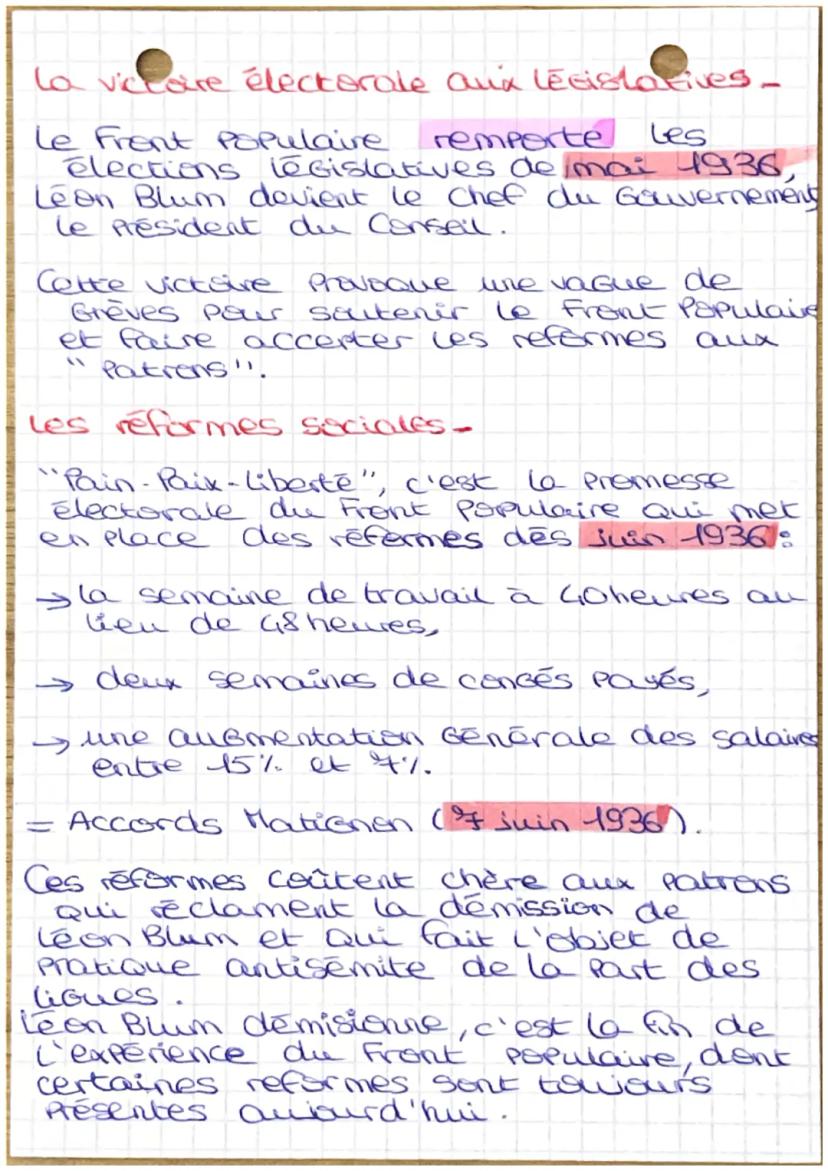 La victoire électorale aux législatives -
Le Front Populaire remporte les
élections législatives de mai 1936,
Léon Blum devient le chef du Gouvernement,
le Président du Conseil.
Cette victoire provoque une vague de
Grèves pour soutenir le Front Populaire
et faire accepter les reformes aux
"Patrons".
Les réformes sociales -
"Pain-Paix-Liberté", c'est la promesse
électorale du Front Populaire qui met
en place des réformes dès juin 1936 :
→ la semaine de travail à 40 heures au
lieu de 48 heures,
→ deux semaines de congés payés,
→ une augmentation générale des salaires
entre 15% et 7%.
= Accords Matignon (7 juin 1936).
Ces réformes coûtent chère aux patrons
qui réclament la démission de
Léon Blum et qui fait l'objet de
pratique antisémite de la part des
ligues.
Léon Blum démisionne, c'est la fin de
l'expérience du Front Populaire, dont
certaines reformes sont toujours
présentes aujourd'hui.